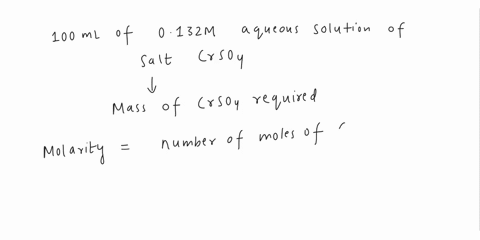 100 mL of 0.132M aqueous solution of
salt CrSO4
↓
Mass of CrSO4 required
Molarity = number of moles of